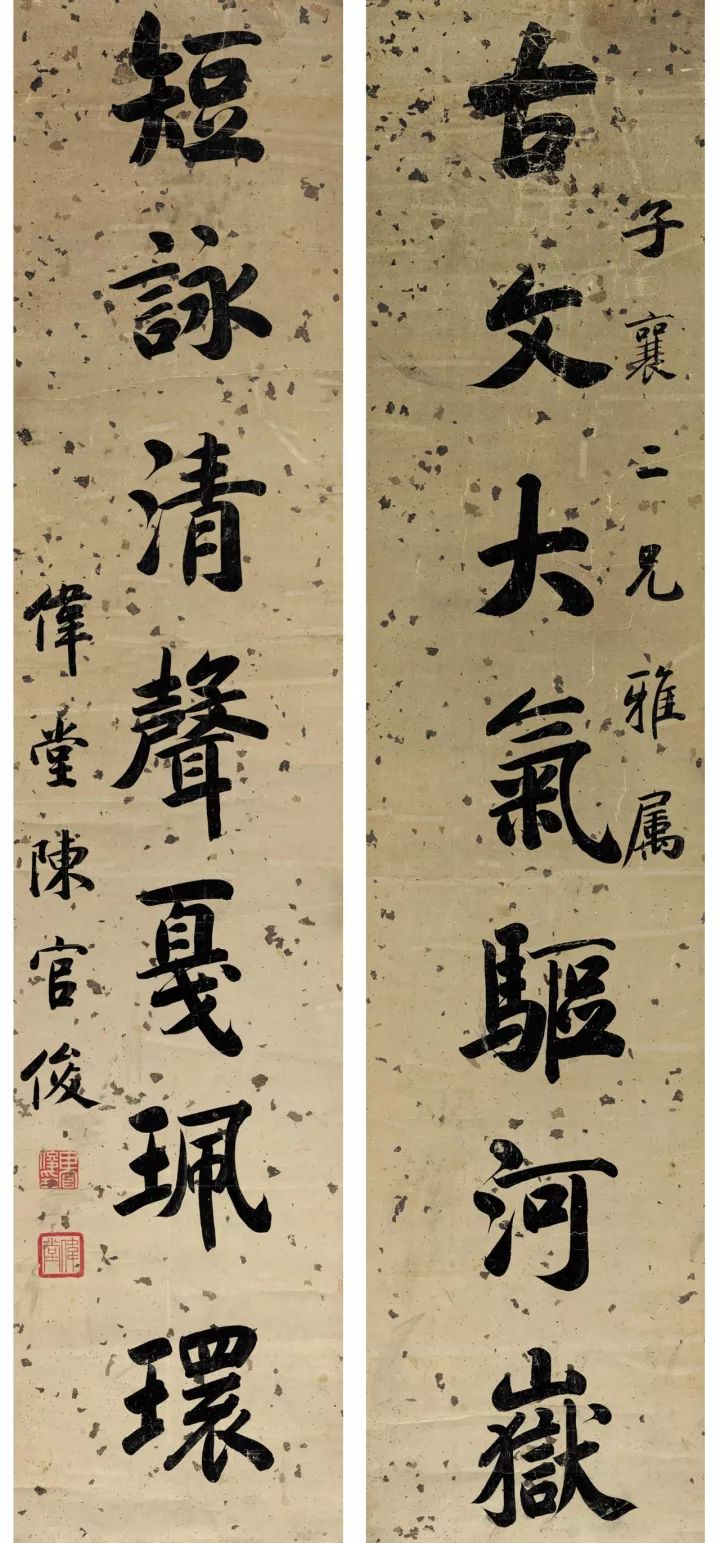 古文大氣驅河嶽
子襄二兄雅属
短詠清聲戛珮環
偉堂陳官俊
偉堂